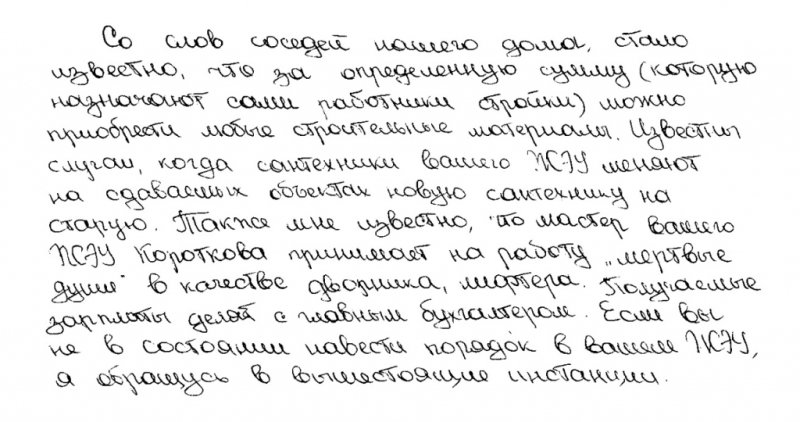 Со слов соседей нашего дома, стало
известно, что за определенную сумму (которую
назначают сами работники стройки) можно
приобрести любые строительные материалы. Известны
случаи, когда сантехники вашего ЖЭУ меняют
на сдаваемых объектах новую сантехнику на
старую. Также мне известно, что мастер вашего
ЖЭУ Короткова принимает на работу „мертвые
души" в качестве дворника, лифтера. Получаемые
зарплаты делят с главным бухгалтером. Если вы
не в состоянии навести порядок в вашем ЖЭУ,
я обращусь в вышестоящие инстанции.